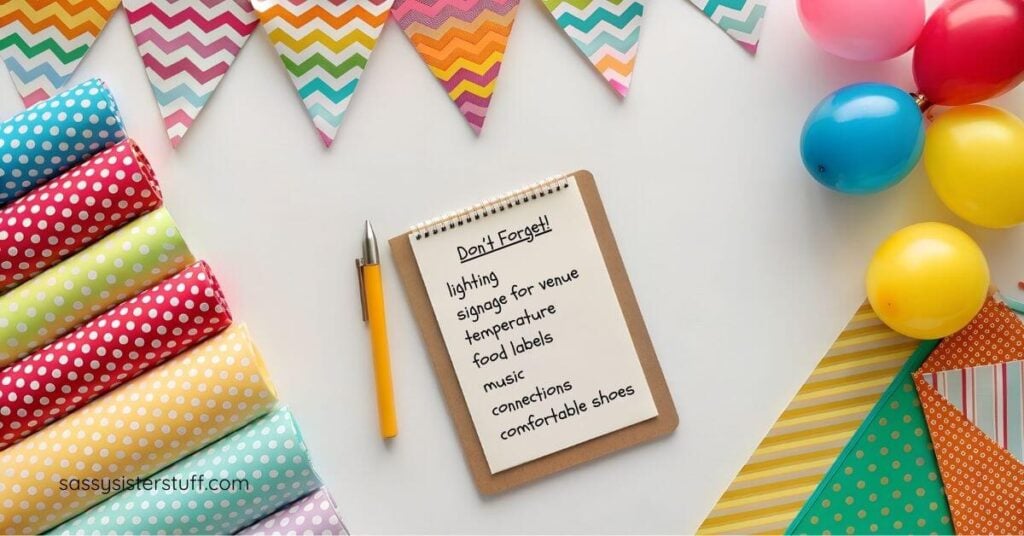 Don't Forget!
lighting
signage for venue
temperature
food labels
music
connections
comfortable shoes
sassysisterstuff.com